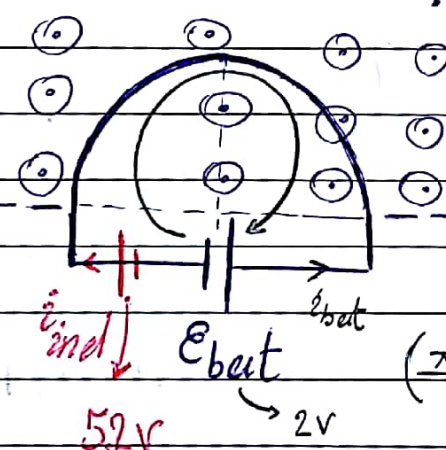 i ind
i bat
Ɛ bat
5.2 V
2 V